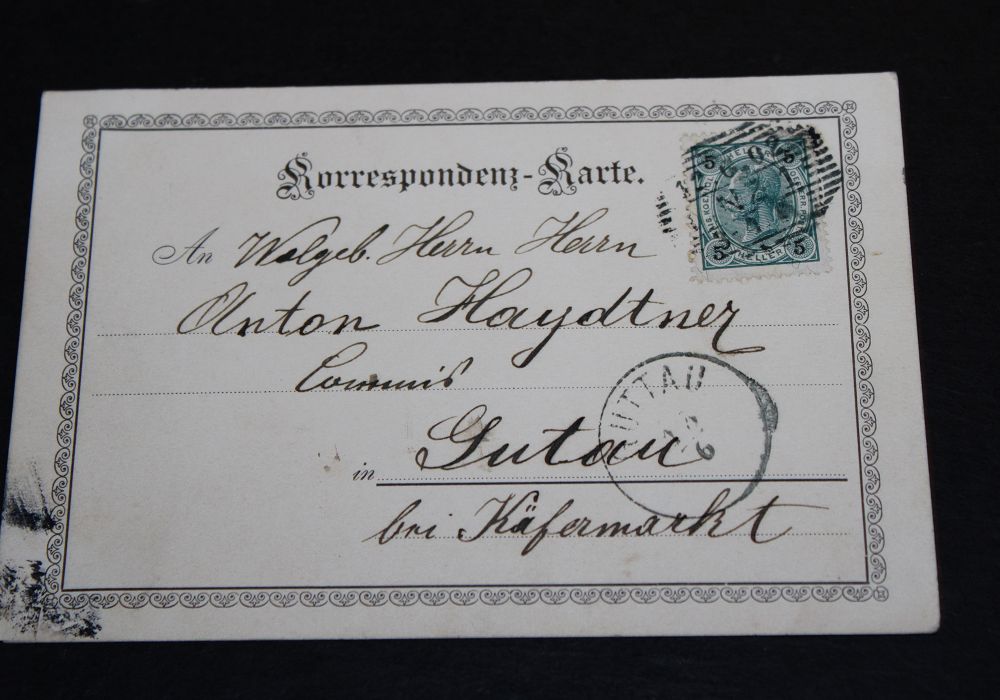 Korrespondenz-Karte.
An Wolgeb. Herrn Herrn
Anton Haydtner
Commis
in Gutau
bei Käfermarkt
5 5
5 HELLER 5
GUTTAU